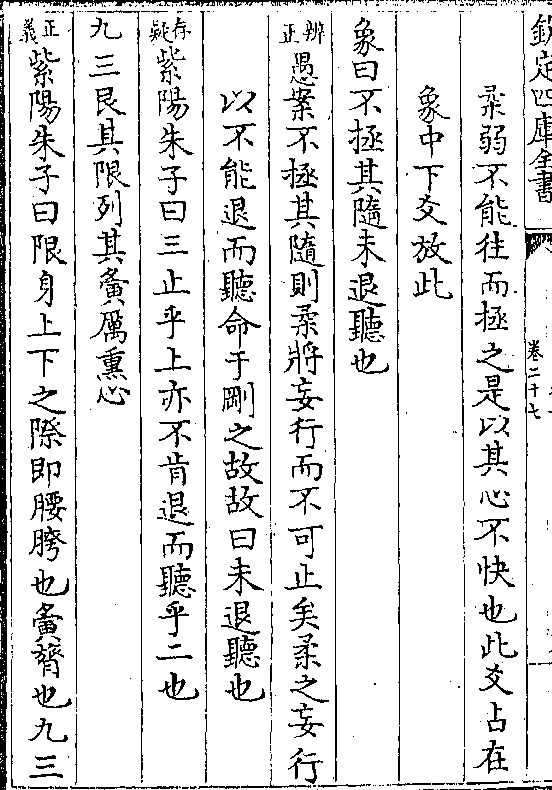 欽定四庫全書
卷二十七
柔弱不能往而拯之是以其心不快也此爻占在
象中下爻放此
象曰不拯其隨未退聽也
辨正
愚案不拯其隨則柔將妄行而不可止矣柔之妄行
以不能退而聽命于剛之故故曰未退聽也
存疑
紫陽朱子曰三止乎上亦不肯退而聽乎二也
九三艮其限列其夤厲熏心
正義
紫陽朱子曰限身上下之際即腰胯也夤膂也九三